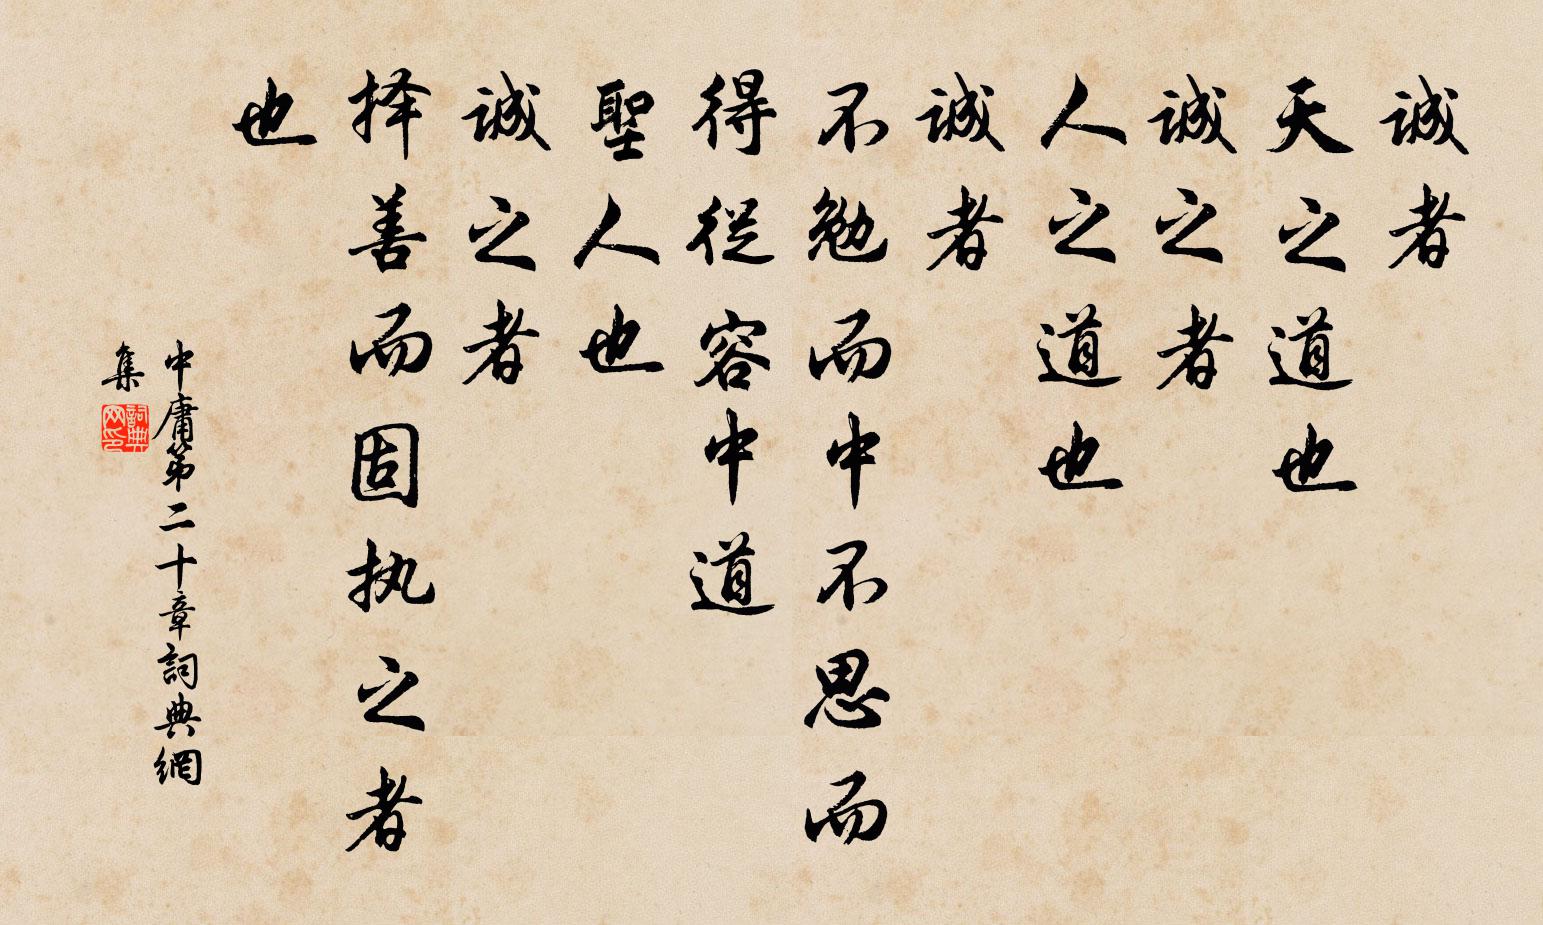 诚者
天之道也
诚之者
人之道也
诚者
不勉而中不思而
得从容中道
聖人也
诚之者
择善而固执之者
也
中庸第二十章詞典網
集
詞典
网印